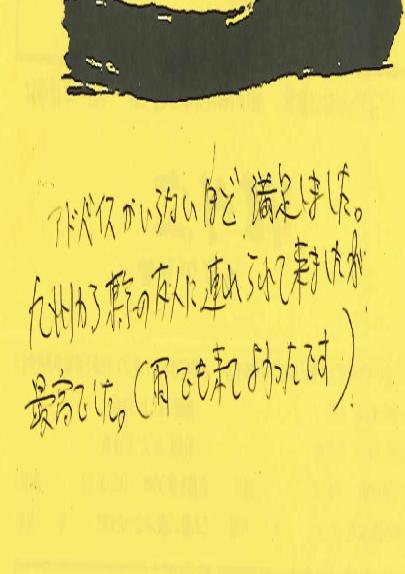 アドバイスがいらないほど満足しました。
九州から東京の友人に連れられて来ましたが
最高でした。(雨でも来てよかったです)